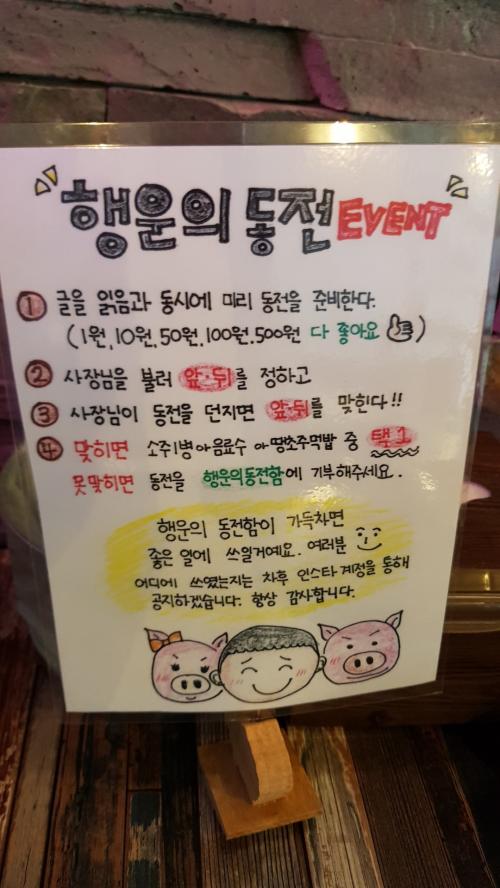 행운의 동전 EVENT
1 글을 읽음과 동시에 미리 동전을 준비한다.
(1원, 10원, 50원, 100원, 500원 다 좋아요)
2 사장님을 불러 앞·뒤를 정하고
3 사장님이 동전을 던지면 앞·뒤를 맞힌다!!
4 맞히면 소주1병 아 음료수 아 땡초주먹밥 중 택1
못맞히면 동전을 행운의동전함에 기부해주세요.
행운의 동전함이 가득차면
좋은 일에 쓰일거예요. 여러분
어디에 쓰였는지는 차후 인스타 계정을 통해
공지하겠습니다. 항상 감사합니다.